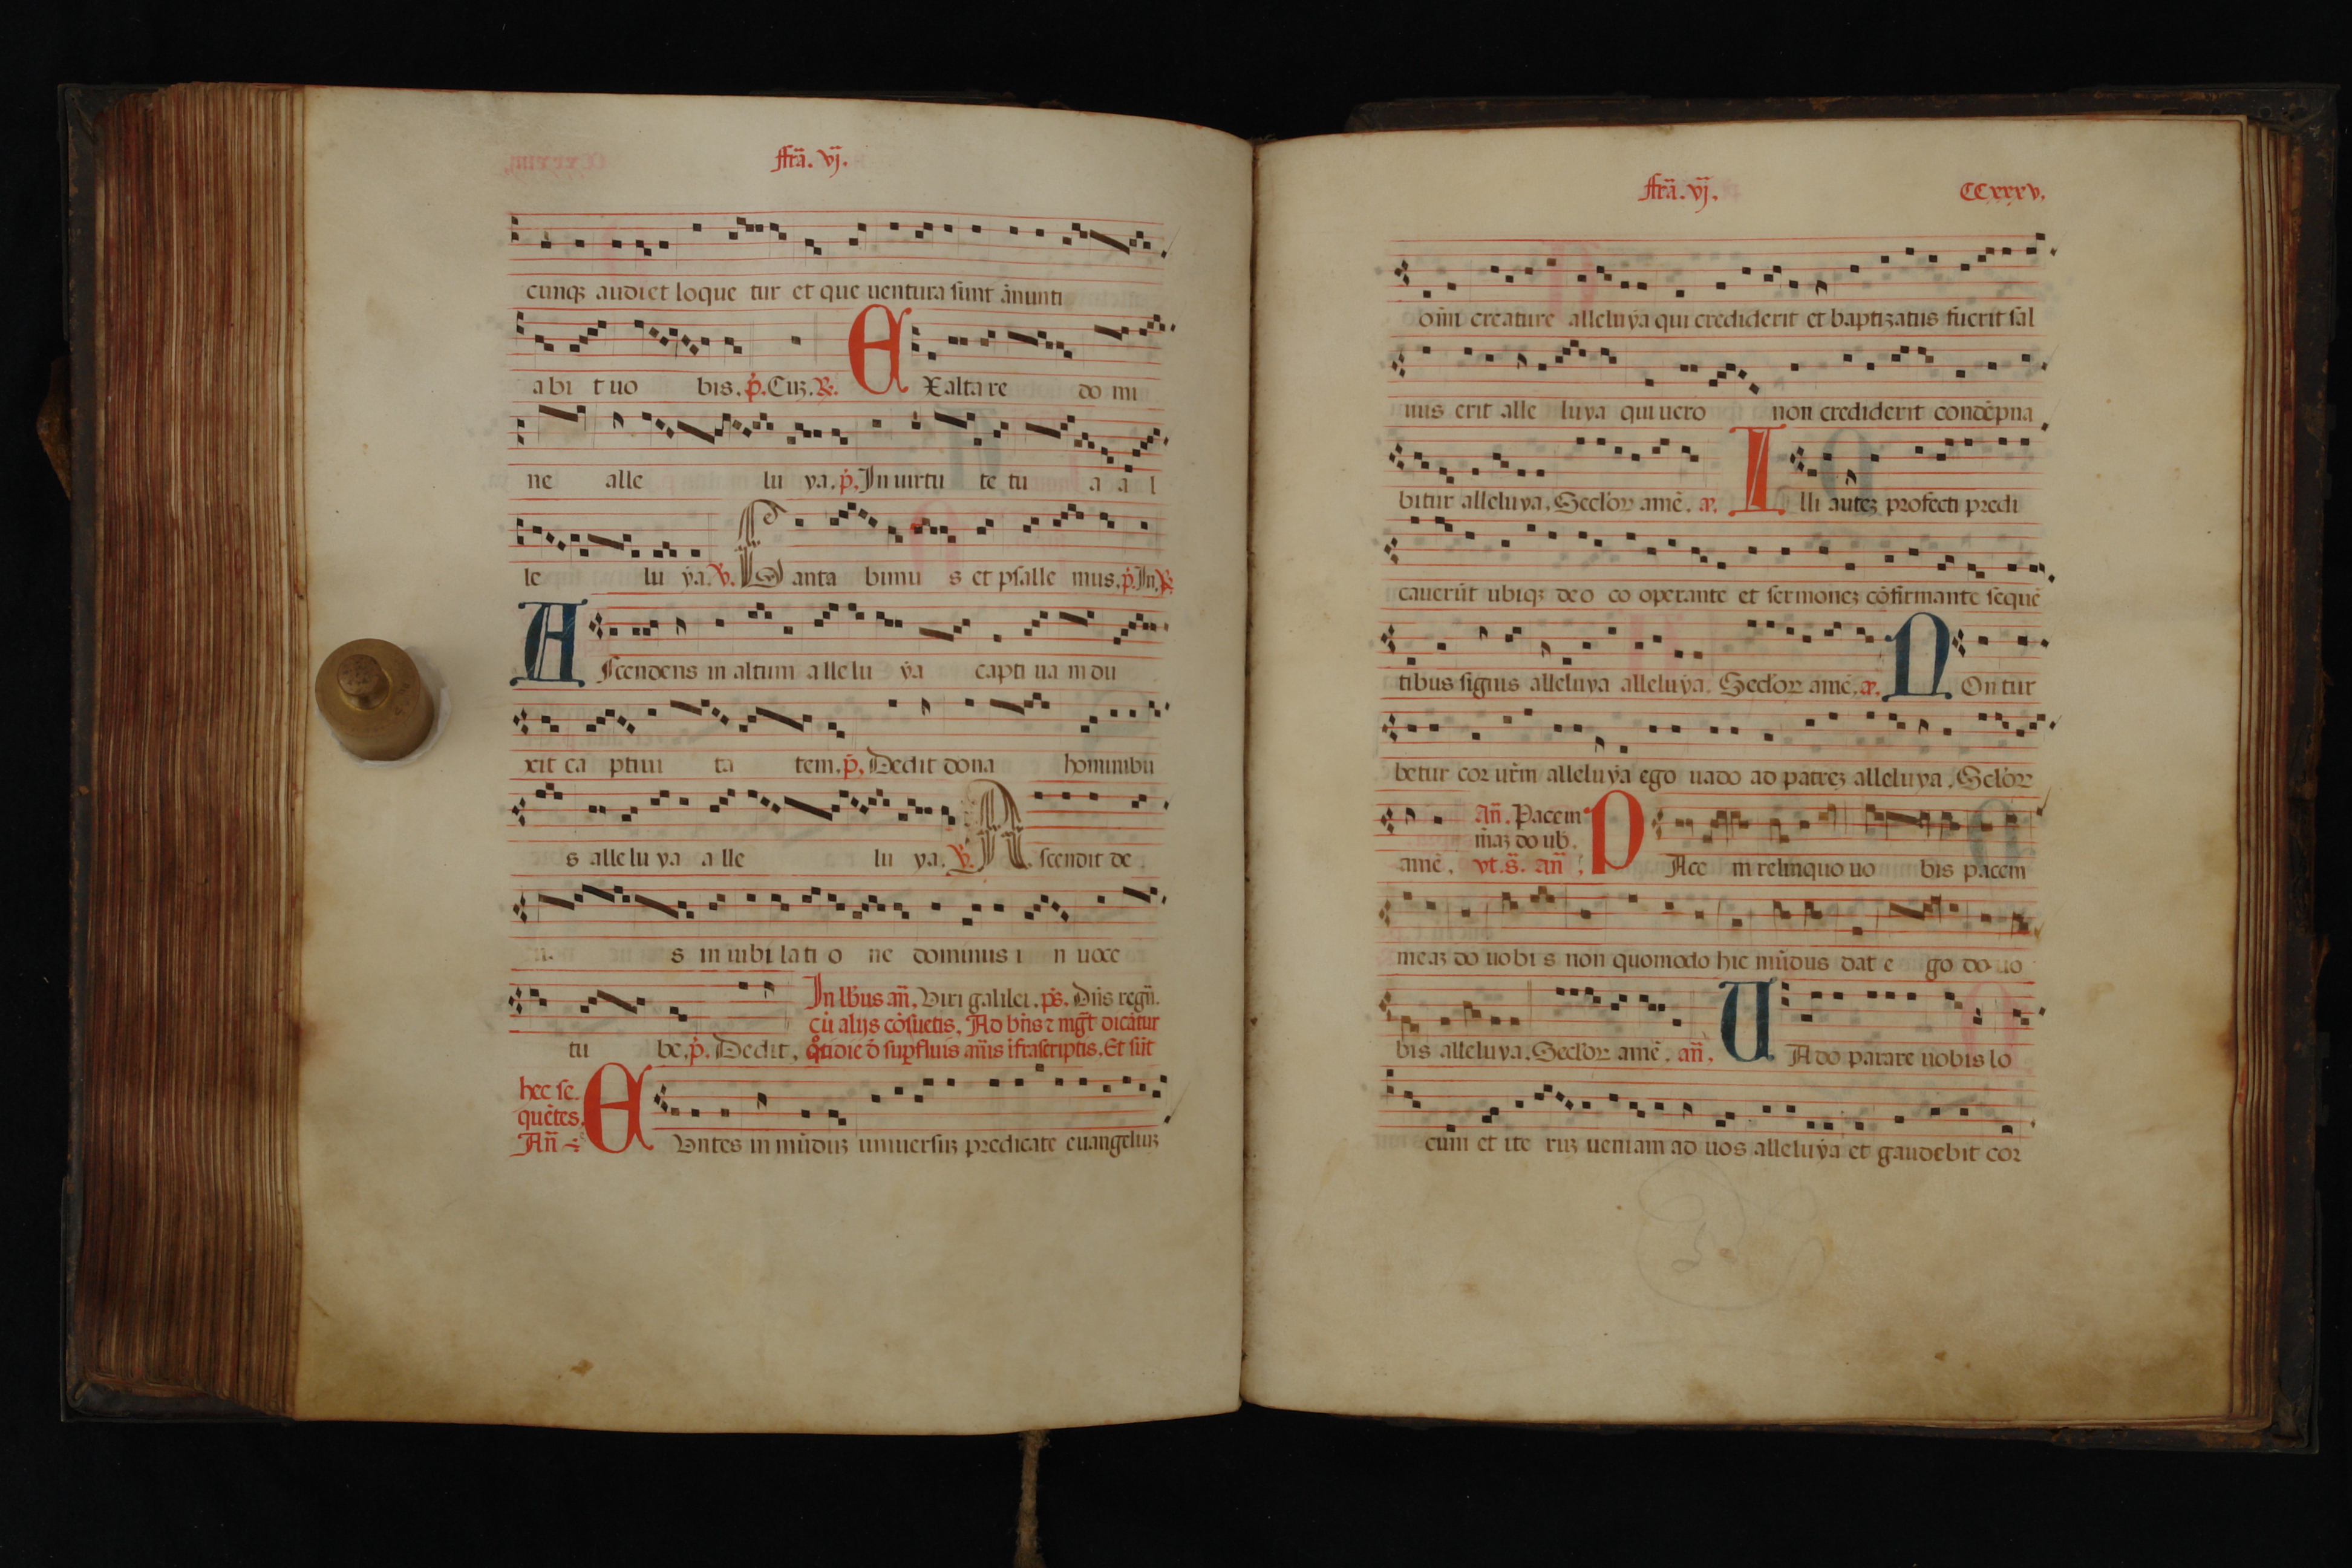 ffrã. vj.
cunqȝ audiet loque tur et que uentura sunt ãnunti
abi t uo bis. p̃. Cuȝ. ℟. E Xalta re do mi
ne alle lu ya. p̃. In uirtu te tu a a l
le lu ẏa. ℣. Canta bimu s et psalle mus. p̃. In. ℟.
A scendens in altum a lle lu ẏa capti ua m du
xit ca ptiui ta tem. p̃. Dedit dona hominibu
s alle lu ya a lle lu ya. ℣. A scendit de
us in iubi la ti o ne dominus i n uoce
tu be. p̃. Dedit.
In lb̃us añ. Viri galilei. ps̃. Dñs regñ.
cũ alijs cõsuetis. Ad bñs ⁊ mgt̃ dicãtur
q̃tidie d̃ supfluis añis ĩfrascriptis. Et sũt
hec se
quẽtes.
Añ
E Vntes in mũduȝ uniuersuȝ predicate euangeliuȝ
ffrã. vj. CCxxxv.
oĩm creature alleluẏa qui crediderit et baptiȝatus fuerit sal
uus erit alle luya qui uero non crediderit condẽpna
bitur alleluya. Seclor amẽ. æ. I lli auteȝ profecti predi
cauerũt ubiqȝ deo co operante et sermoneȝ cõfirmante sequẽ
tibus signis alleluya alleluẏa. Seclor amẽ. æ. N On tur
betur cor ur̃m alleluẏa ego uado ad patreȝ alleluya. Sclor
amẽ.
añ. Pacem
meaȝ do ub.
vt. s̃. añ
P Ace m relinquo uo bis pacem
meaȝ do uobi s non quomodo hic mũdus dat e go do uo
bis alleluya. Seclor amẽ. añ. U Ado parare uobis lo
cum et ite ruȝ ueniam ad uos alleluẏa et gaudebit cor